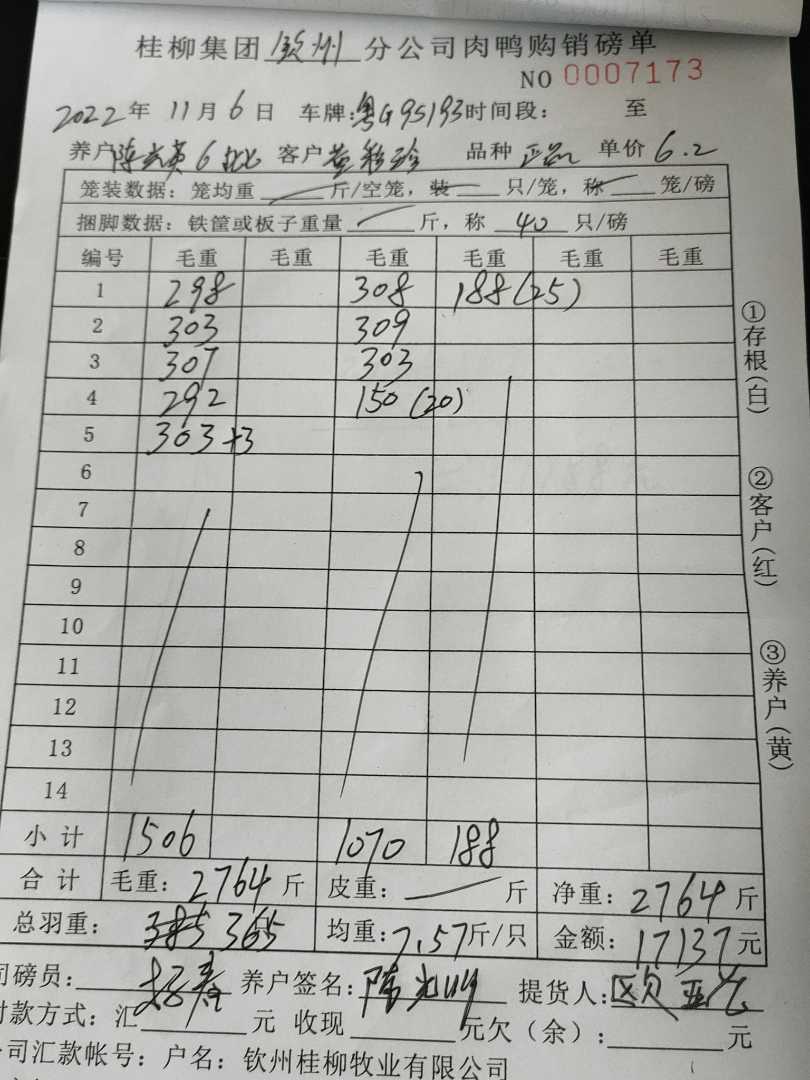 桂柳集团 钦州 分公司肉鸭购销磅单
NO 0007173
2022年 11月 6日 车牌:粤G95193 时间段: 至
养户 陈 英 6批 客户 黄 珍 品种 正品 单价 6.2
笼装数据: 笼均重 斤/空笼, 装 只/笼, 称 笼/磅
捆脚数据: 铁筐或板子重量 斤, 称 40 只/磅
编号 毛重 毛重 毛重 毛重 毛重 毛重
1 298 308 188(25)
2 303 309
3 307 303
4 292 150(20)
5 303+3
6
7
8
9
10
11
12
13
14
小计 1506 1070 188
合计 毛重: 2764 斤 皮重: 斤 净重: 2764 斤
总羽重: 385 365 均重: 7.57 斤/只 金额: 17137 元
司磅员: 养户签名: 陈 提货人: 欧亚
付款方式: 汇 元 收现 元欠(余): 元
公司汇款帐号: 户名: 钦州桂柳牧业有限公司
①存根(白)
②客户(红)
③养户(黄)